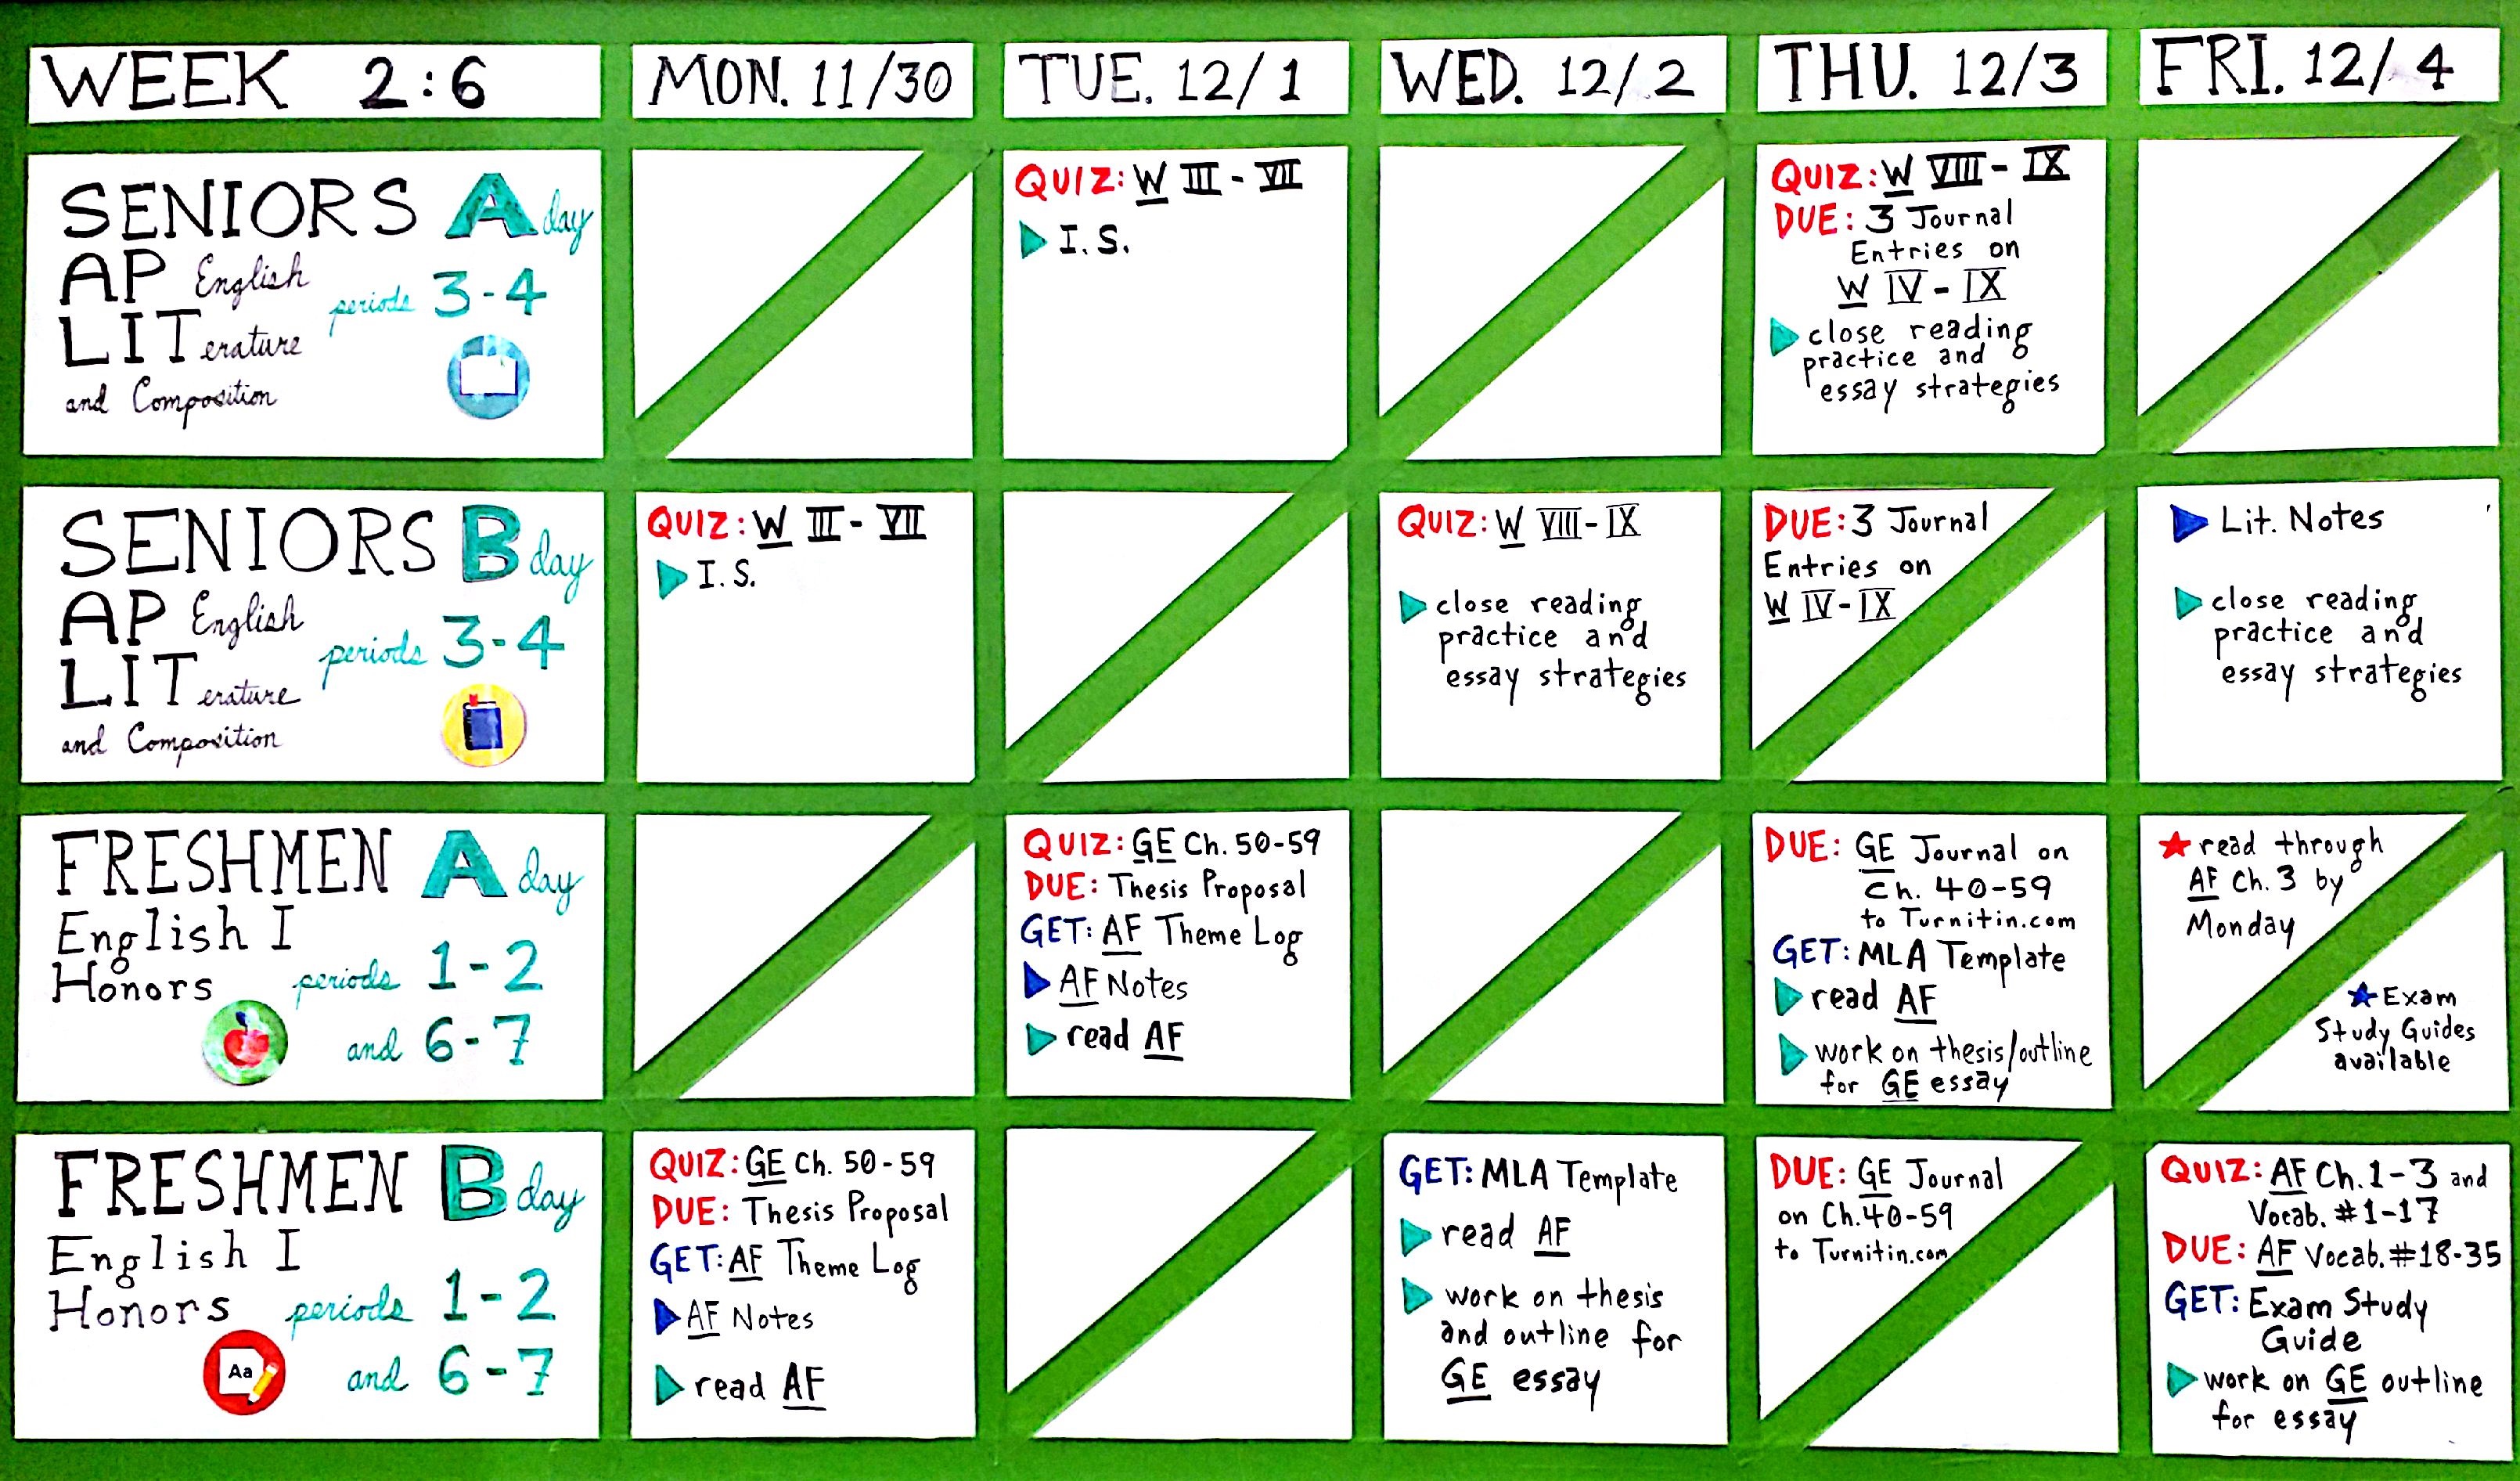 WEEK 2:6
MON. 11/30
TUE. 12/1
WED. 12/2
THU. 12/3
FRI. 12/4
SENIORS A day
AP English
LITerature
and Composition
periods 3-4
QUIZ: W III - VII
I.S.
QUIZ: W VIII - IX
DUE: 3 Journal
Entries on
W IV - IX
close reading
practice and
essay strategies
SENIORS B day
AP English
LITerature
and Composition
periods 3-4
QUIZ: W III - VII
I.S.
QUIZ: W VIII - IX
close reading
practice and
essay strategies
DUE: 3 Journal
Entries on
W IV - IX
Lit. Notes
close reading
practice and
essay strategies
FRESHMEN A day
English I
Honors
periods 1-2
and 6-7
QUIZ: GE Ch. 50-59
DUE: Thesis Proposal
GET: AF Theme Log
AF Notes
read AF
DUE: GE Journal on
Ch. 40-59
to Turnitin.com
GET: MLA Template
read AF
work on thesis/outline
for GE essay
read through
AF Ch. 3 by
Monday
Exam
Study Guides
available
FRESHMEN B day
English I
Honors
periods 1-2
and 6-7
Aa
QUIZ: GE Ch. 50-59
DUE: Thesis Proposal
GET: AF Theme Log
AF Notes
read AF
GET: MLA Template
read AF
work on thesis
and outline for
GE essay
DUE: GE Journal
on Ch. 40-59
to Turnitin.com
QUIZ: AF Ch. 1-3 and
Vocab. #1-17
DUE: AF Vocab. #18-35
GET: Exam Study
Guide
work on GE outline
for essay